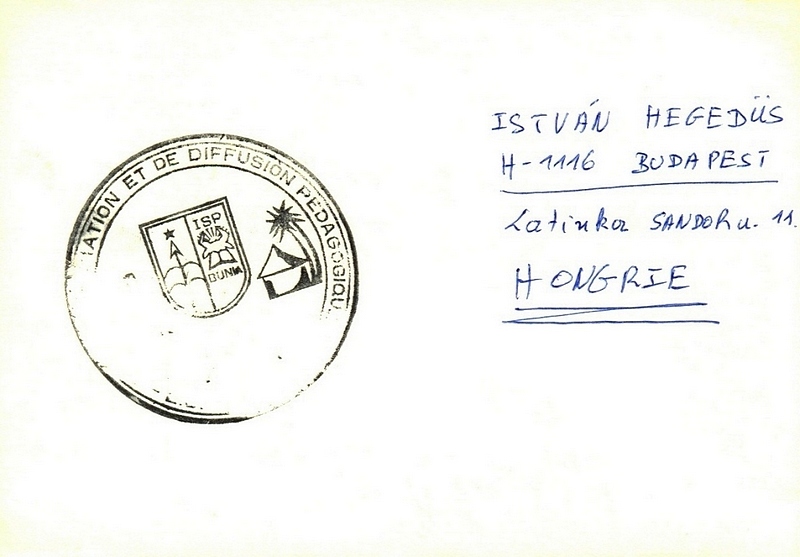 ATION ET DE DIFFUSION PEDAGOGIQU
ISP
BUNIA
ISTVÁN HEGEDÜS
H-1116 BUDAPEST
Latinka SANDOR u. 11.
HONGRIE